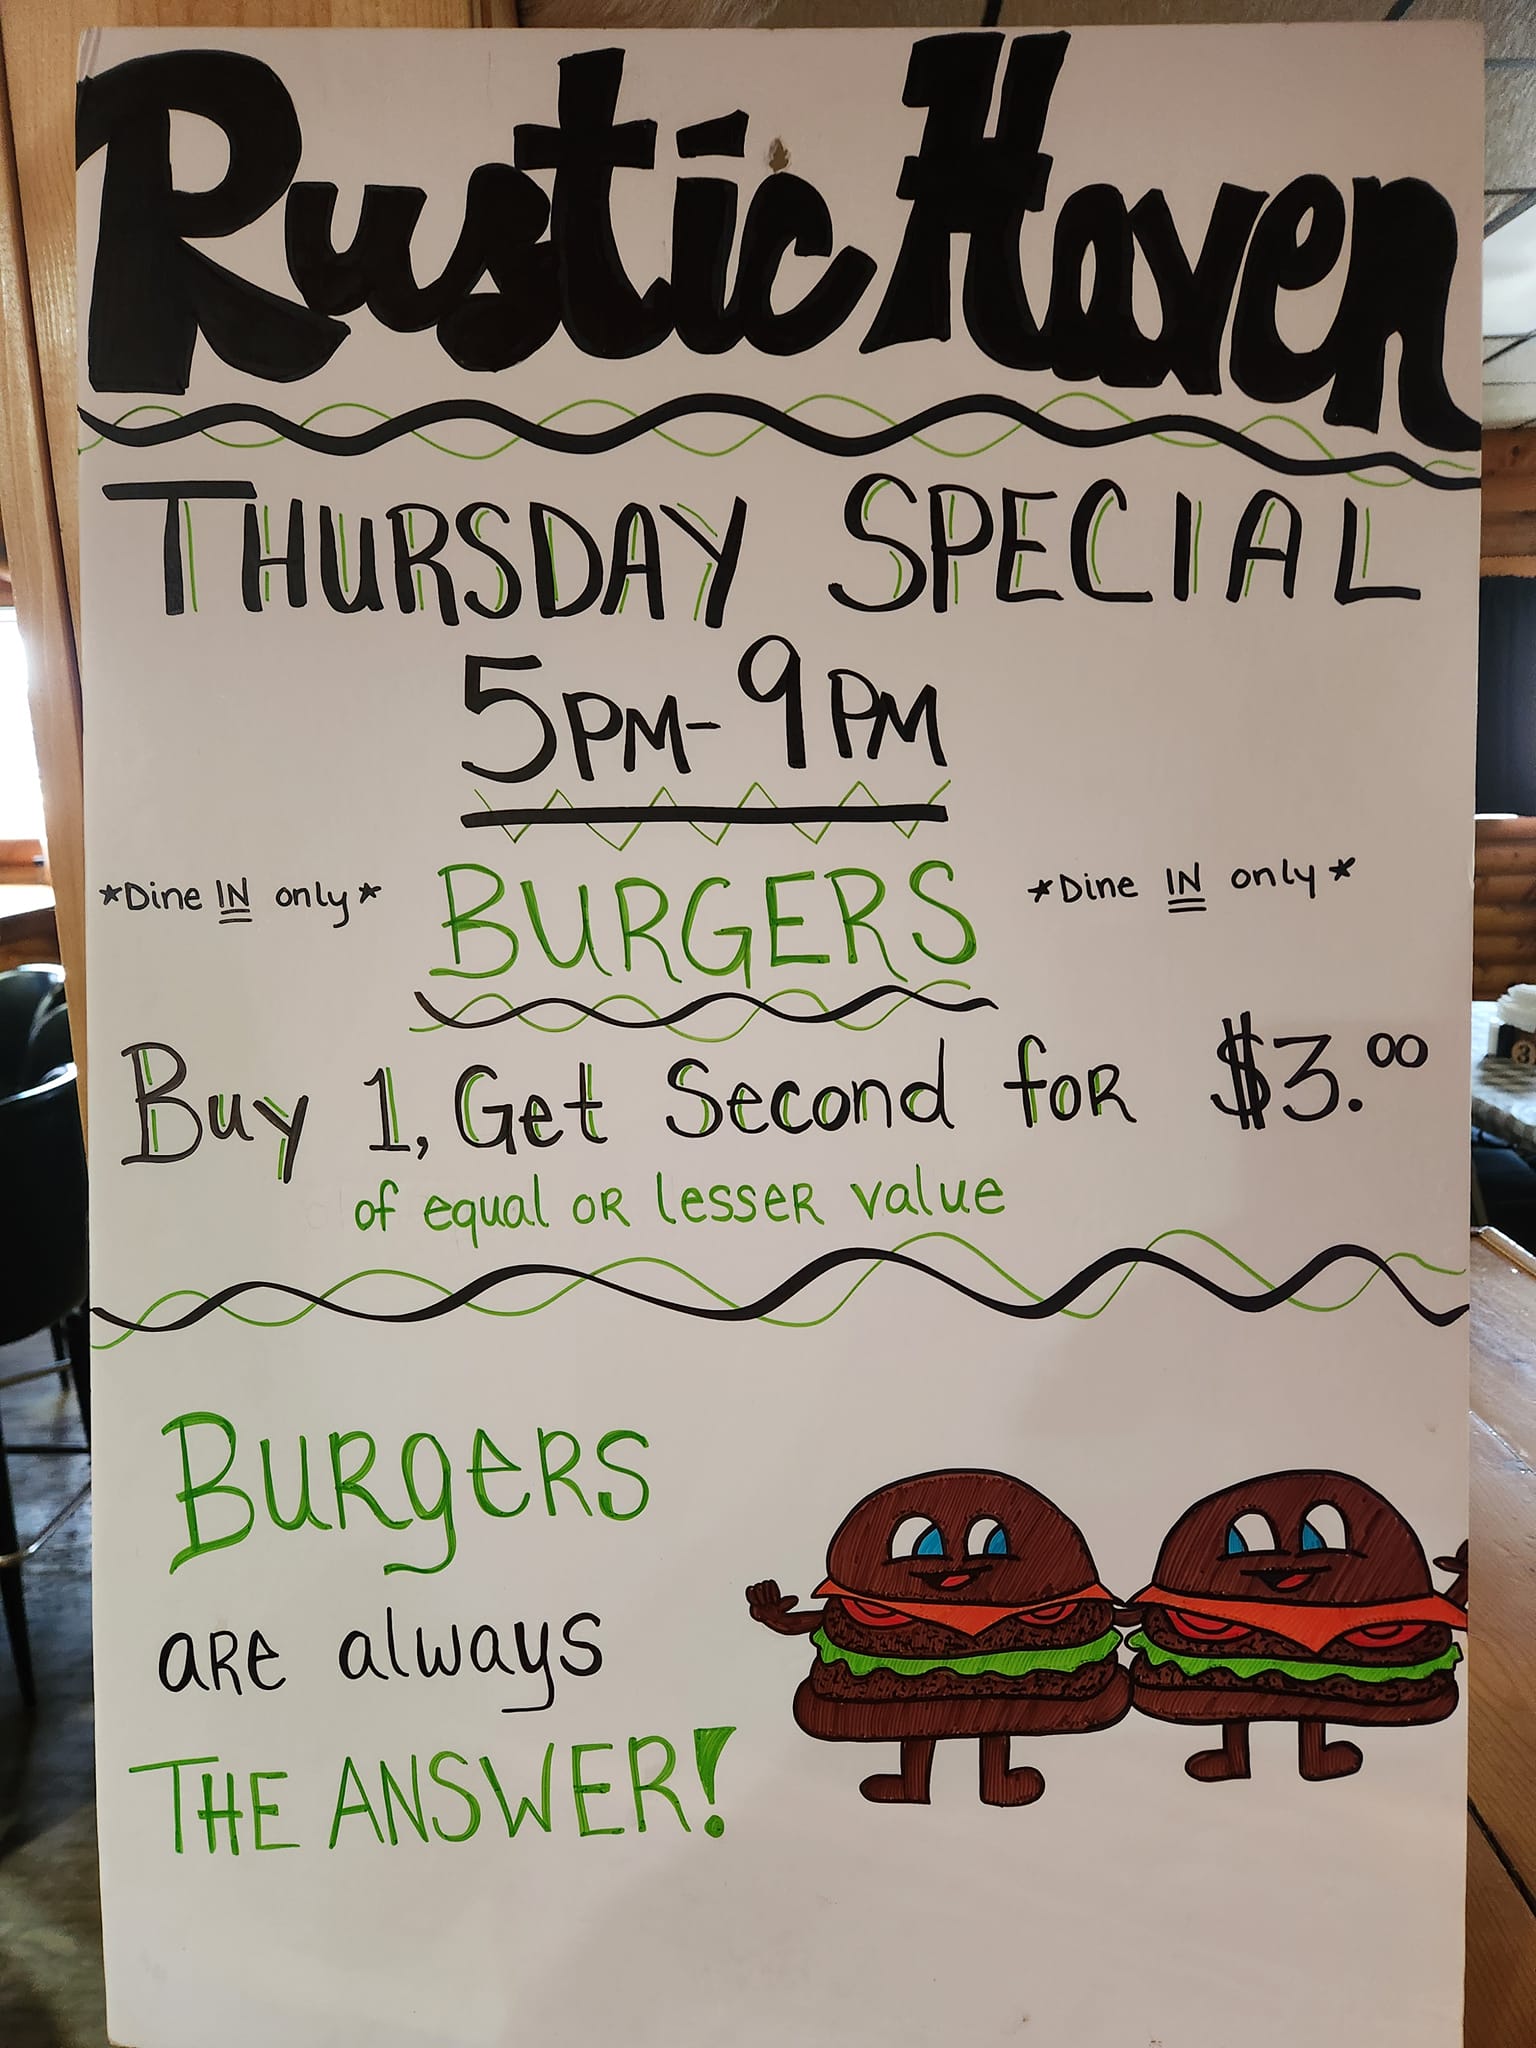 Rustic Haven
THURSDAY SPECIAL
5PM-9PM
*Dine IN only* BURGERS *Dine IN only*
Buy 1, Get Second for $3.00
of equal or lesser value
Burgers
are always
THE ANSWER!
3